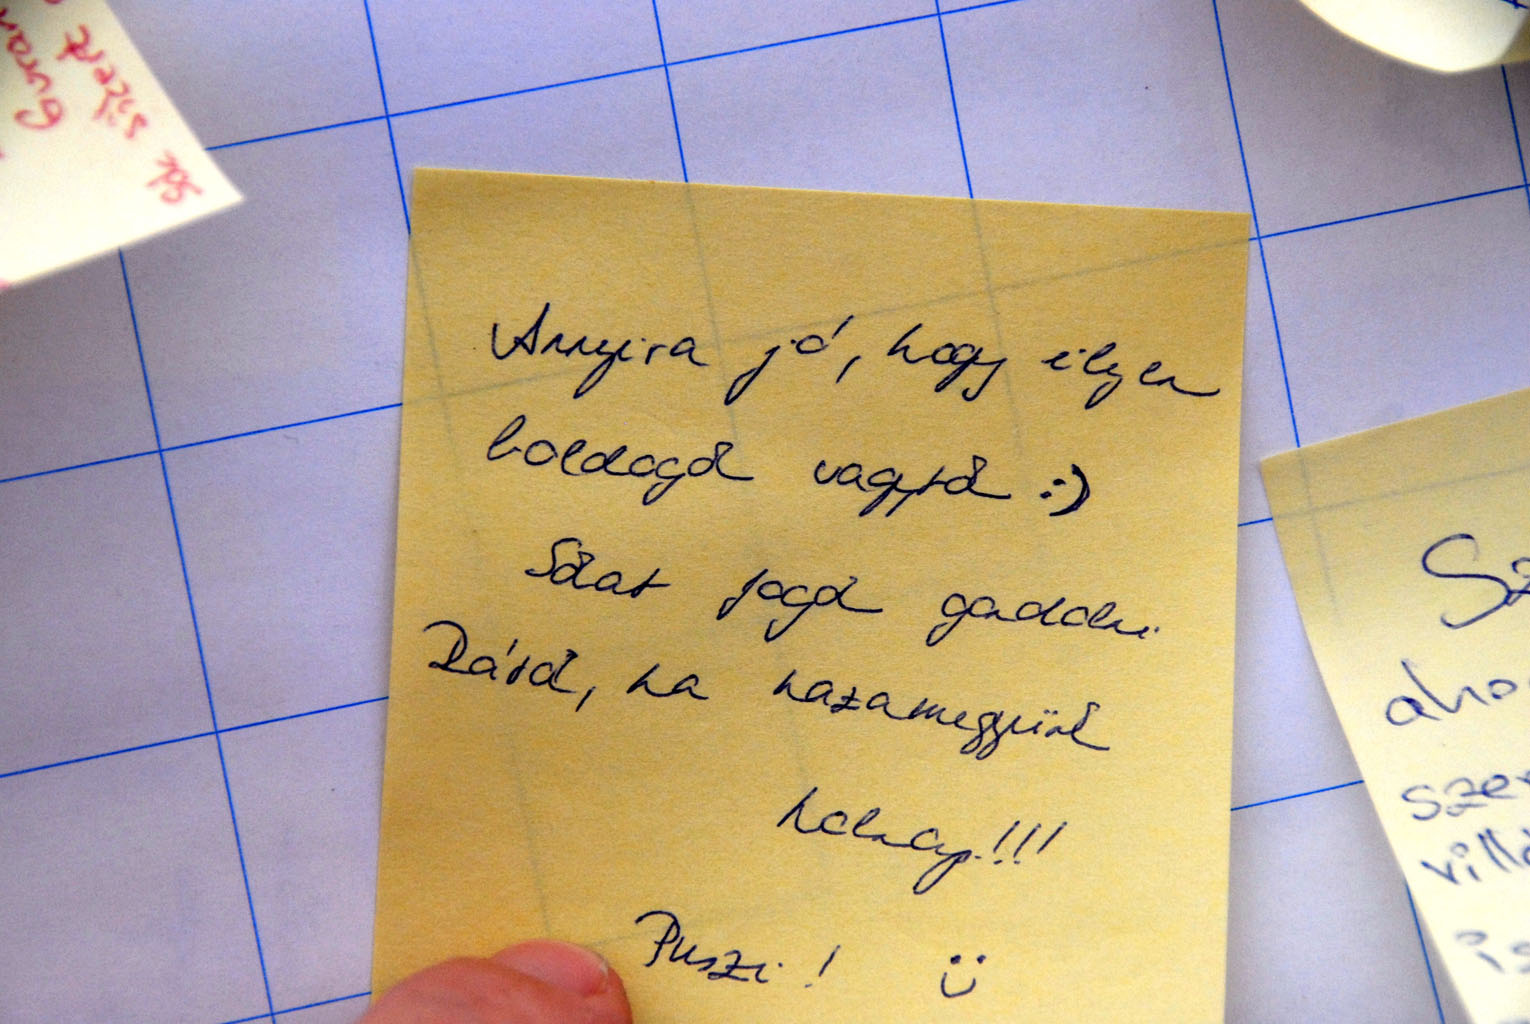 Annyira jó, hogy ilyen
boldogok vagytok :)
Sokat fogok gondolni
Rátok, ha hazamegyünk
holnap!!!
Puszi!
Sz
aho
szer
vill
is
sok
szeret